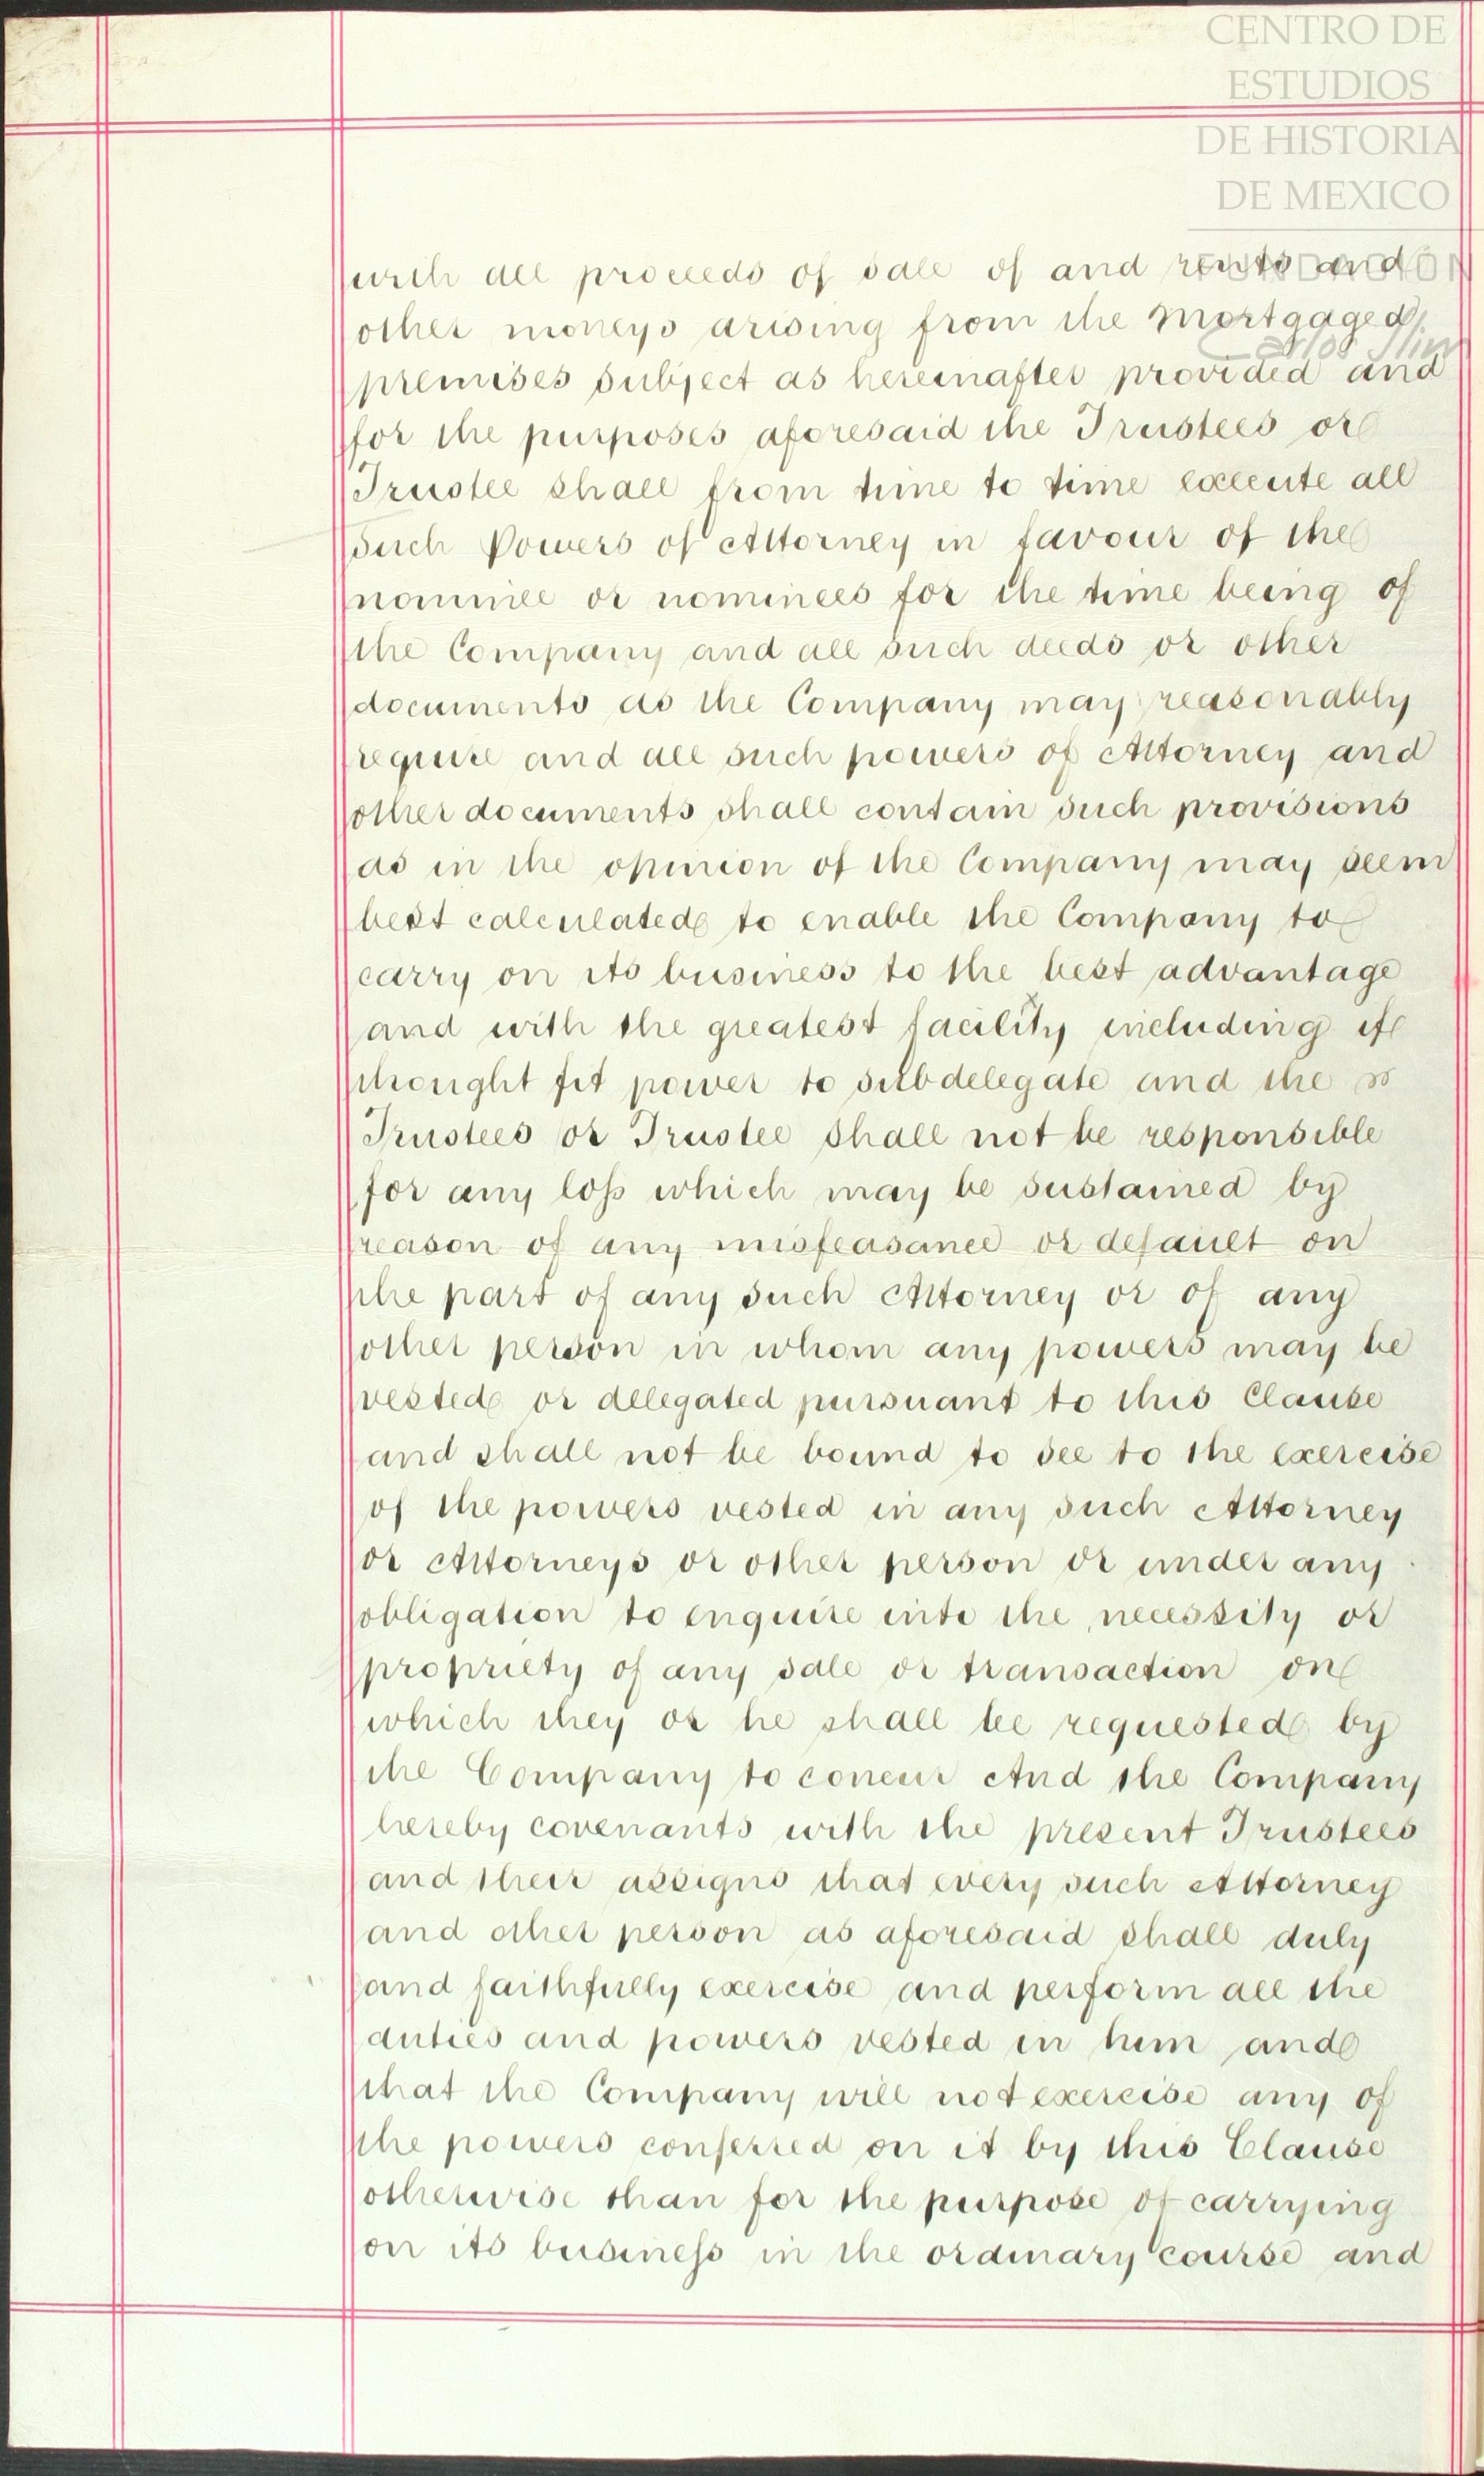 CENTRO DE
ESTUDIOS
DE HISTORIA
DE MEXICO
FUNDACIÓN
Carlos Slim
with all proceeds of sale of and rents and
other moneys arising from the Mortgaged
premises subject as hereinafter provided and
for the purposes aforesaid the Trustees or
Trustee shall from time to time execute all
such Powers of Attorney in favour of the
nominee or nominees for the time being of
the Company and all such deeds or other
documents as the Company may reasonably
require and all such powers of Attorney and
other documents shall contain such provisions
as in the opinion of the Company may seem
best calculated to enable the Company to
carry on its business to the best advantage
and with the greatest facility including if
thought fit power to subdelegate and the
Trustees or Trustee shall not be responsible
for any loss which may be sustained by
reason of any misfeasance or default on
the part of any such Attorney or of any
other person in whom any powers may be
vested or delegated pursuant to this Clause
and shall not be bound to see to the exercise
of the powers vested in any such Attorney
or Attorneys or other person or under any
obligation to enquire into the necessity or
propriety of any sale or transaction on
which they or he shall be requested by
the Company to concur And the Company
hereby covenants with the present Trustees
and their assigns that every such Attorney
and other person as aforesaid shall duly
and faithfully exercise and perform all the
duties and powers vested in him and
that the Company will not exercise any of
the powers conferred on it by this Clause
otherwise than for the purpose of carrying
on its business in the ordinary course and